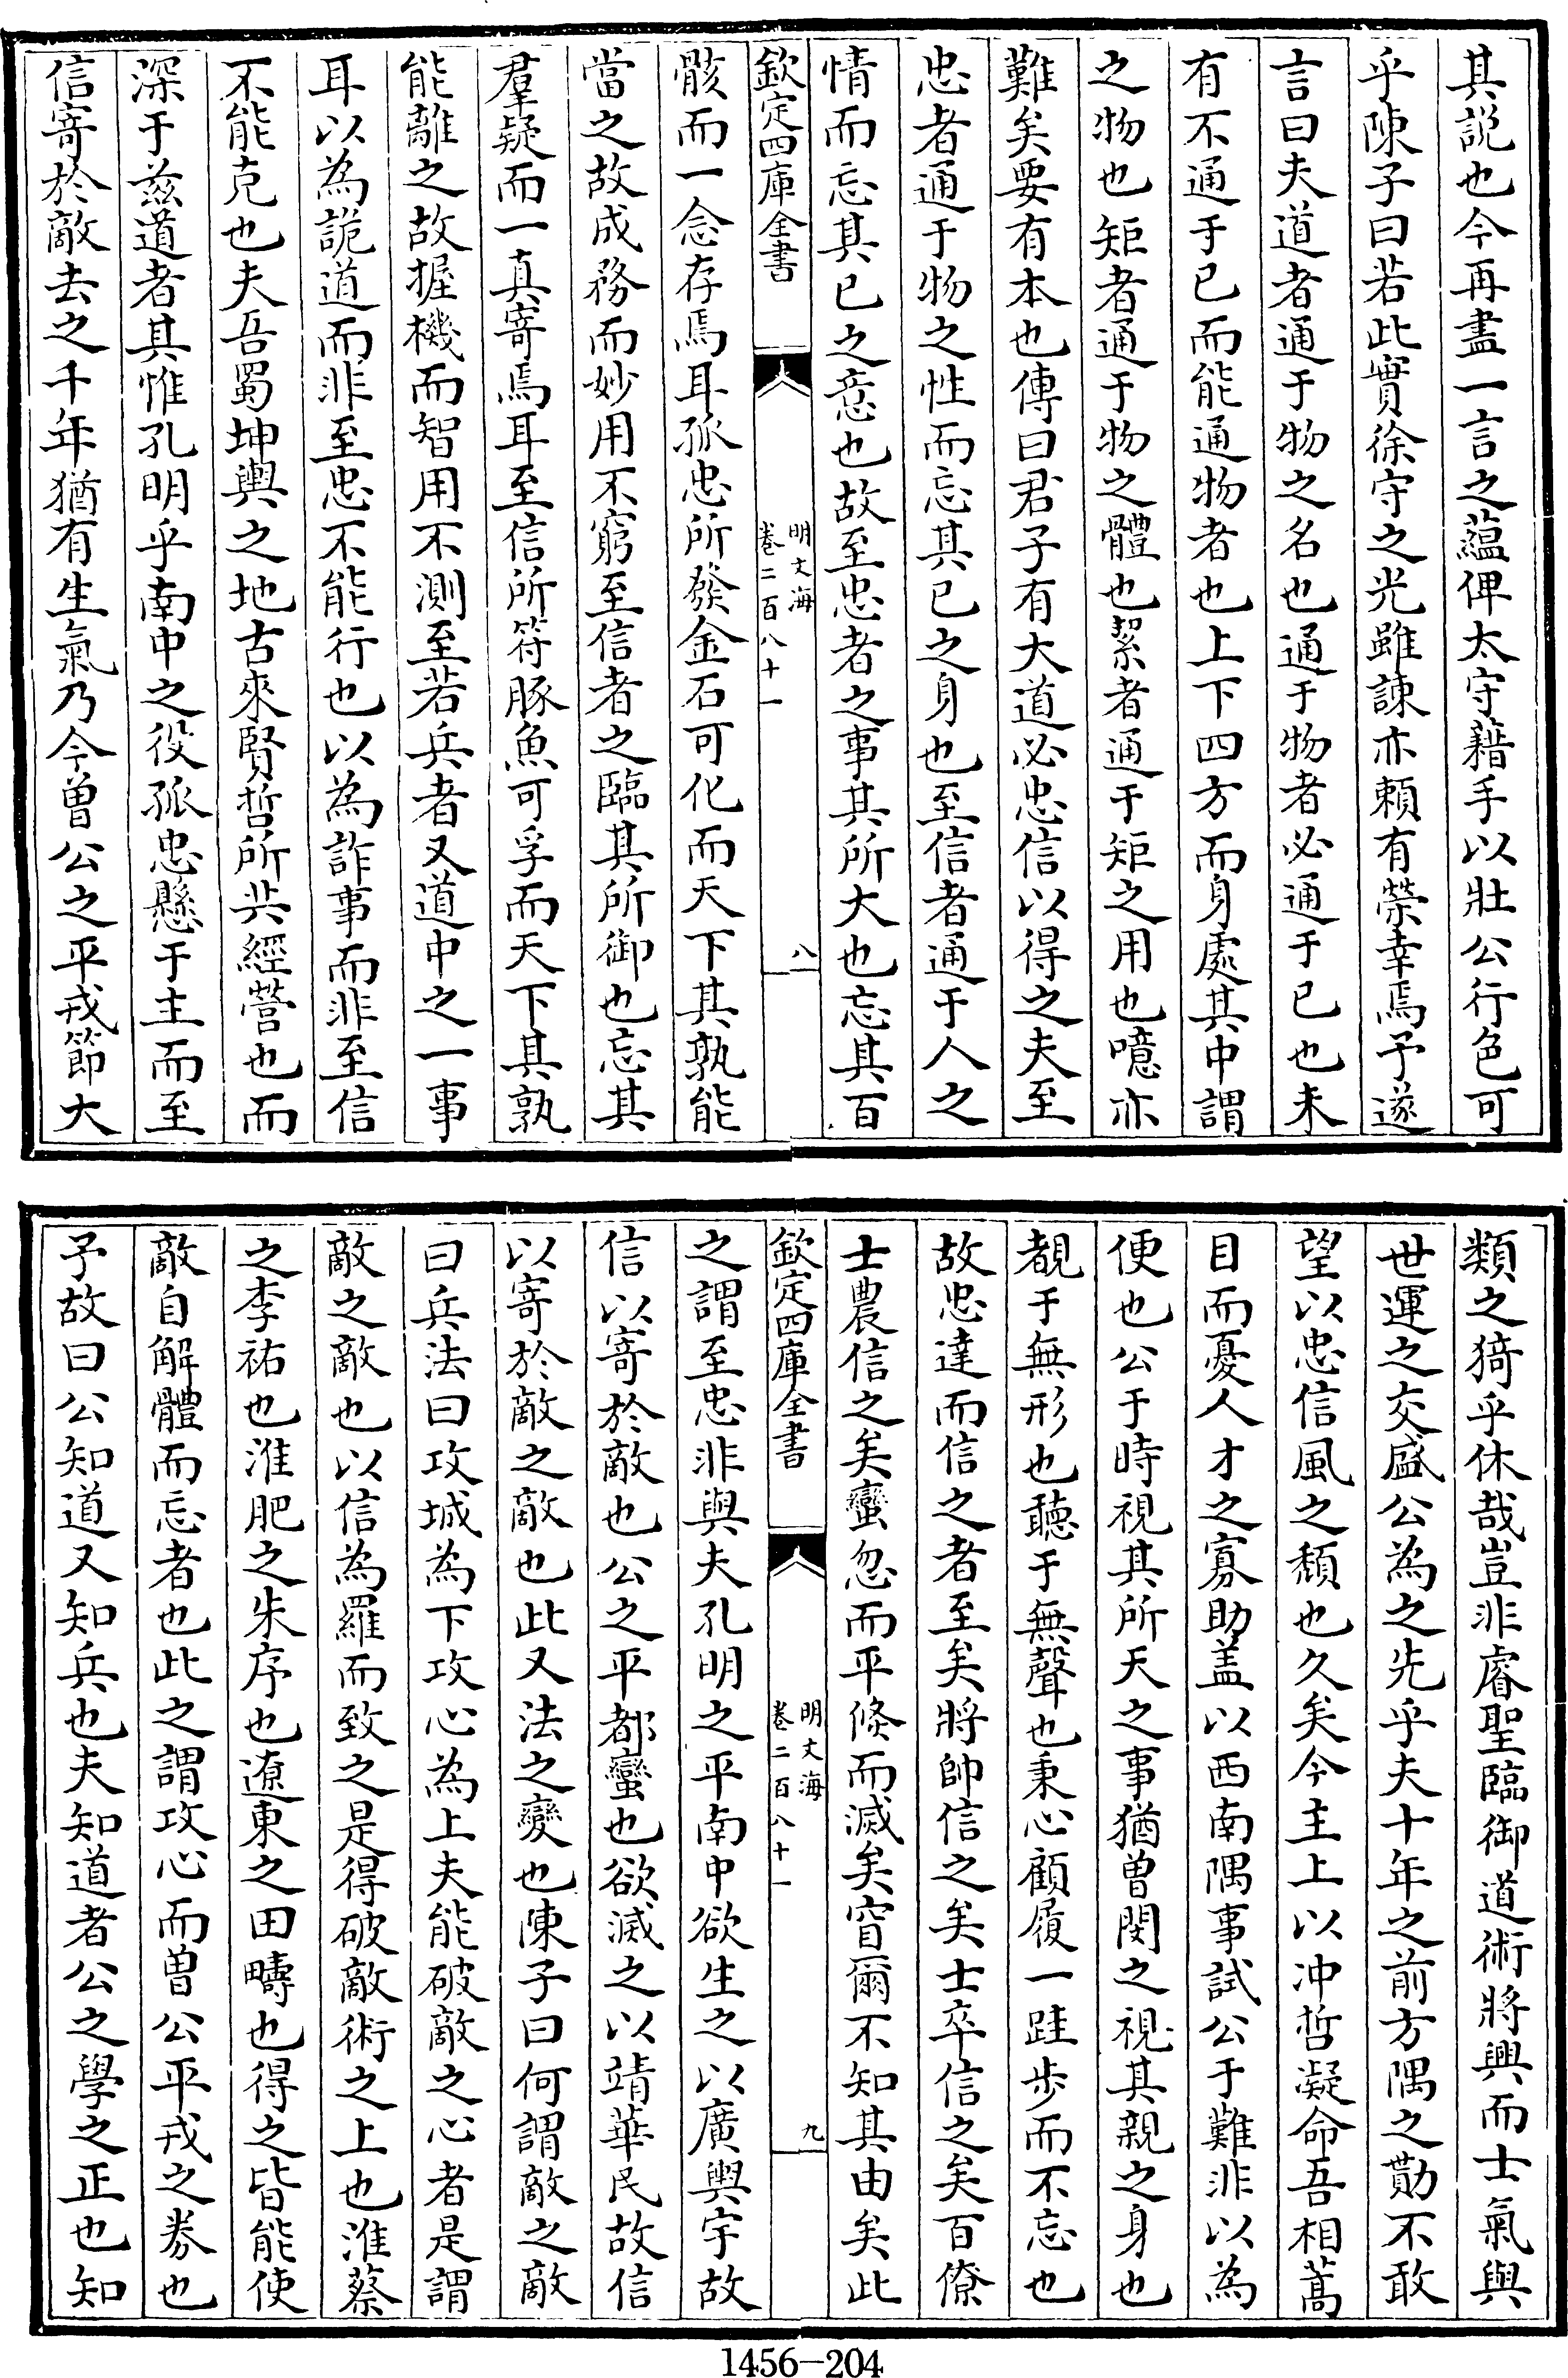 其説也今再盡一言之蘊俾太守藉手以壯公行色可
乎陳子曰若此實徐守之光雖諫亦頼有榮幸焉予遂
言曰夫道者通于物之名也通于物者必通于已也未
有不通于已而能通物者也上下四方而身處其中謂
之物也矩者通于物之體也絜者通于矩之用也噫亦
難矣要有本也傳曰君子有大道必忠信以得之夫至
忠者通于物之性而忘其已之身也至信者通于人之
情而忘其已之意也故至忠者之事其所大也忘其百
欽定四庫全書
明文海
卷二百八十一
八
骸而一念存焉耳孤忠所發金石可化而天下其孰能
當之故成務而妙用不窮至信者之臨其所御也忘其
羣疑而一真寄焉耳至信所符豚魚可孚而天下其孰
能離之故握機而智用不測至若兵者又道中之一事
耳以為詭道而非至忠不能行也以為詐事而非至信
不能克也夫吾蜀坤輿之地古來賢哲所共經營也而
深于兹道者其惟孔明乎南中之役孤忠懸于主而至
信寄於敵去之千年猶有生氣乃今曽公之平戎節大
類之猗乎休哉豈非睿聖臨御道術將興而士氣與
世運之交盛公為之先乎夫十年之前方隅之勛不敢
望以忠信風之頽也久矣今主上以冲哲凝命吾相蒿
目而憂人才之寡助盖以西南隅事試公于難非以為
便也公于時視其所天之事猶曽閔之視其親之身也
覩于無形也聽于無聲也秉心顧履一跬步而不忘也
故忠達而信之者至矣將帥信之矣士卒信之矣百僚
士農信之矣蠻忽而平倐而滅矣窅爾不知其由矣此
欽定四庫全書
明文海
卷二百八十一
九
之謂至忠非與夫孔明之平南中欲生之以廣輿宇故
信以寄於敵也公之平都蠻也欲滅之以靖華民故信
以寄於敵之敵也此又法之變也陳子曰何謂敵之敵
曰兵法曰攻城為下攻心為上夫能破敵之心者是謂
敵之敵也以信為羅而致之是得破敵術之上也淮蔡
之李祐也淮肥之朱序也遼東之田疇也得之皆能使
敵自解體而忘者也此之謂攻心而曽公平戎之券也
予故曰公知道又知兵也夫知道者公之學之正也知
1456—204